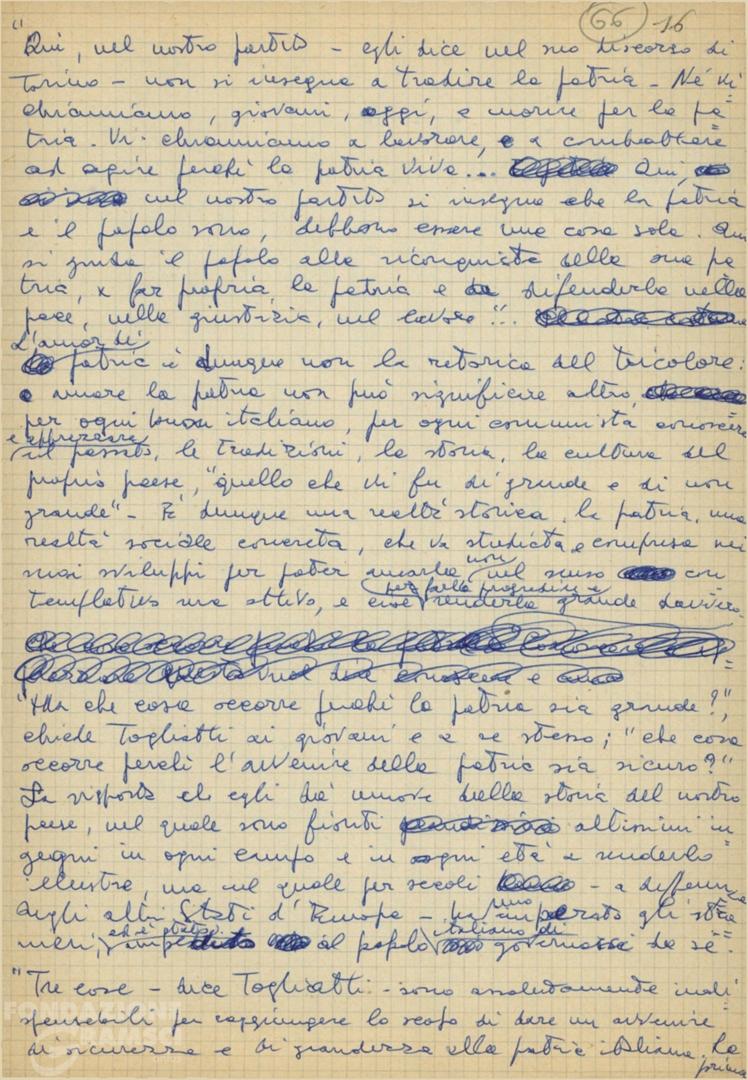 66 16
"Qui, nel nostro partito - egli dice nel suo discorso di
Torino - non si insegna a tradire la patria - Né vi
chiamiamo, giovani, oggi, a morire per la pa=
tria. Vi chiamiamo a lavorare, e a combattere
ad agire perché la patria viva... Qui,
nel nostro partito si insegna che la patria
e il popolo sono, debbono essere una cosa sola. Qui
si guida il popolo alla riconquista della sua pa
tria, a far propria la patria e a difenderla nella
pace, nella giustizia, nel lavoro"...
L'amor di
patria è dunque non la retorica del tricolore:
amare la patria non può significare altro,
per ogni buon italiano, per ogni comunista conoscere
e apprezzare
il passato, le tradizioni, la storia, la cultura del
proprio paese, "quello che vi fu di grande e di non
grande" - È dunque una realtà storica, la patria, una
realtà sociale concreta, che va studiata e compresa nei
suoi sviluppi per poter amarla, non nel senso con
templativo ma attivo, e cioè per farla progredire e renderla grande davvero.
"Ma che cosa occorre perché la patria sia grande?",
chiede Togliatti ai giovani e a se stesso; "che cosa
occorre perché l'avvenire della patria sia sicuro?"
La risposta che egli dà muove dalla storia del nostro
paese, nel quale sono fioriti altissimi in
gegni in ogni campo e in ogni età a renderlo
illustre, ma nel quale per secoli - a differenza
degli altri Stati d'Europa - hanno imperato gli stra
nieri, ed è stato impedito al popolo italiano di governarsi da sé.
"Tre cose - dice Togliatti - sono assolutamente indi
spensabili per raggiungere lo scopo di dare un avvenire
di sicurezza e di grandezza alla patria italiana. La
prima
FONDAZIONE
GRAMSCI